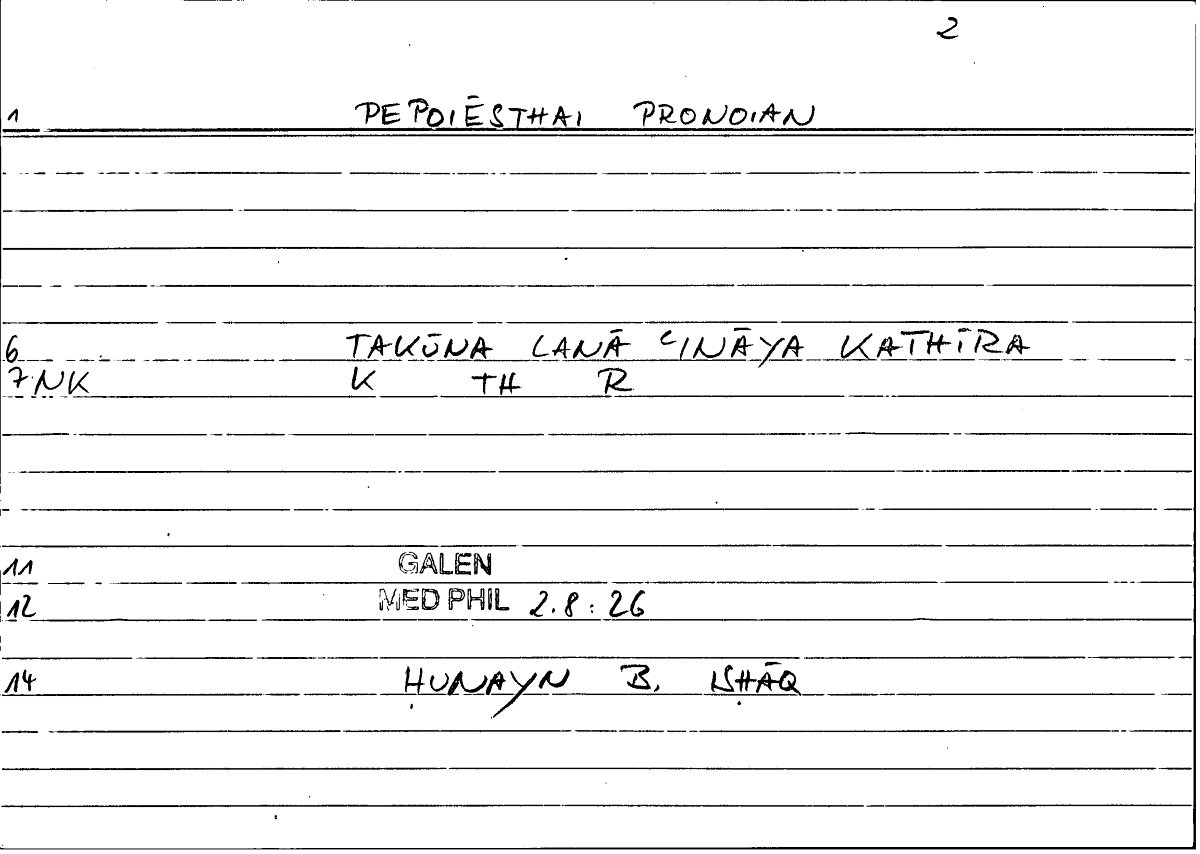 2
1 PEPOIĒSTHAI PRONOIAN
6 TAKŪNA LANĀ ʿINĀYA KATHĪRA
7NK K TH R
11 GALEN
12 MED PHIL 2.8:26
14 ḤUNAYN B. ISḤĀQ